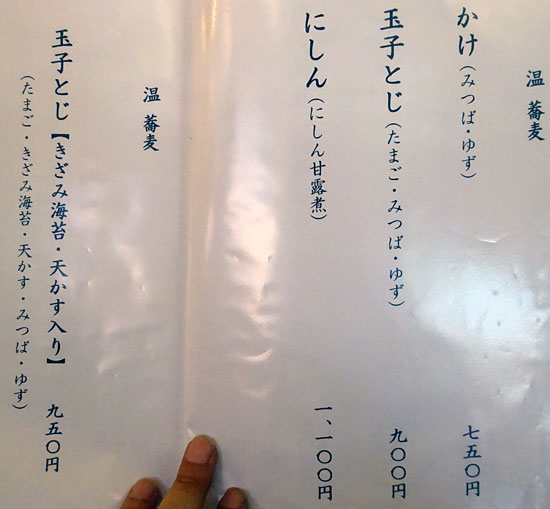 温 蕎麦
かけ（みつば・ゆず） 七五〇円
玉子とじ（たまご・みつば・ゆず） 九〇〇円
にしん（にしん甘露煮） 一、一〇〇円
温 蕎麦
玉子とじ【きざみ海苔・天かす入り】 九五〇円
（たまご・きざみ海苔・天かす・みつば・ゆず）